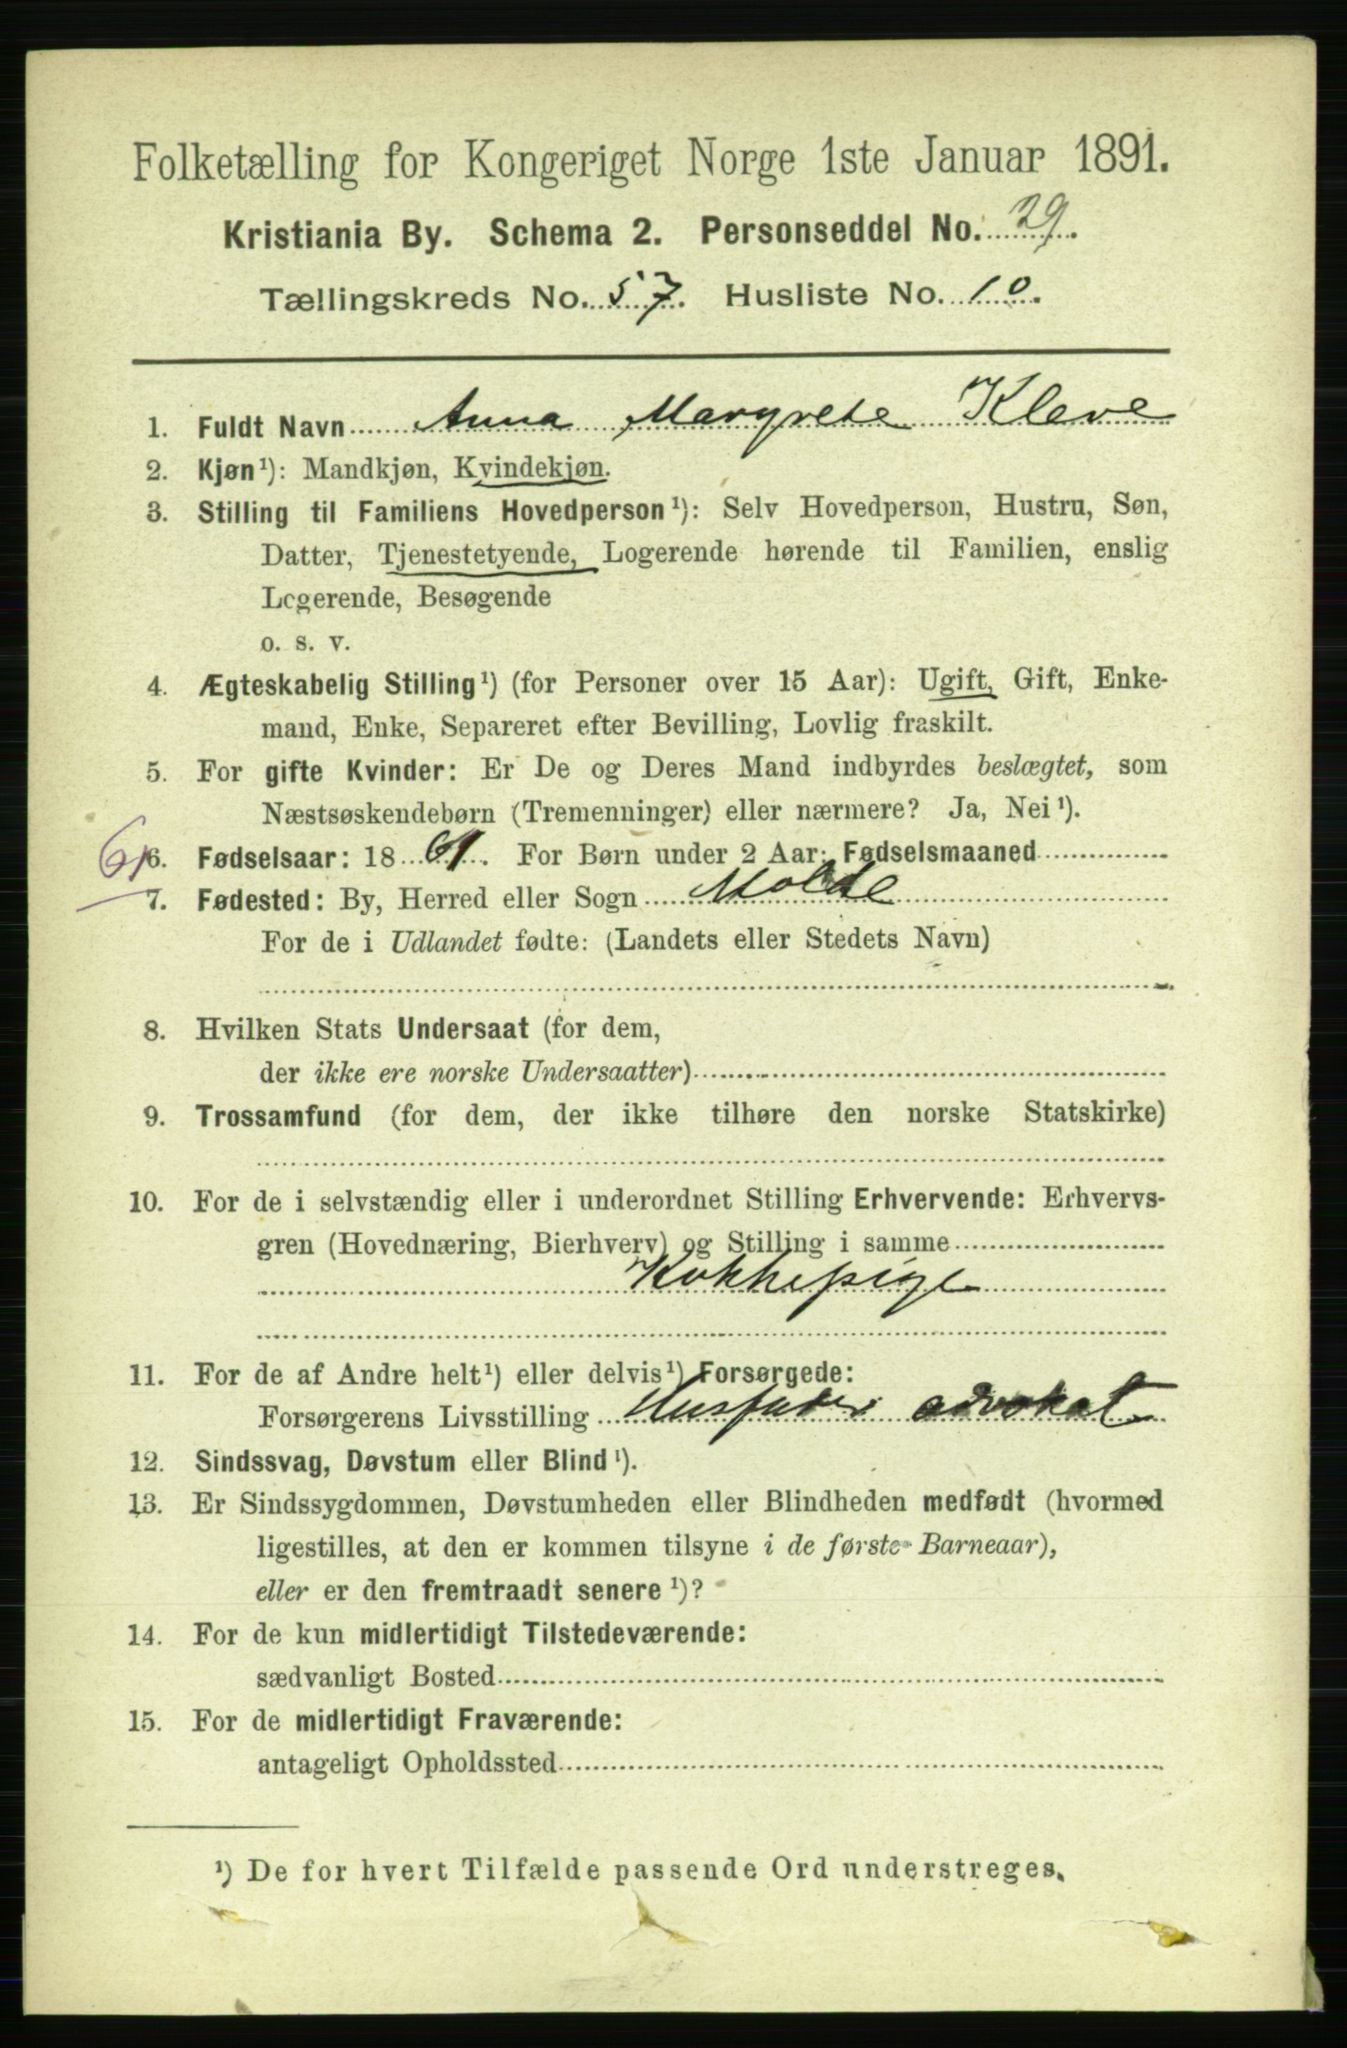 Folketælling for Kongeriget Norge 1ste Januar 1891.
Kristiania By. Schema 2. Personseddel No. 29.
Tællingskreds No. 57. Husliste No. 10.
1. Fuldt Navn Anna Margrete Kleve
2. Kjøn¹): Mandkjøn, Kvindekjøn.
3. Stilling til Familiens Hovedperson¹): Selv Hovedperson, Hustru, Søn,
Datter, Tjenestetyende, Logerende hørende til Familien, enslig
Logerende, Besøgende
o. s. v.
4. Ægteskabelig Stilling¹) (for Personer over 15 Aar): Ugift, Gift, Enke-
mand, Enke, Separeret efter Bevilling, Lovlig fraskilt.
5. For gifte Kvinder: Er De og Deres Mand indbyrdes beslægtet, som
Næstsøskendebørn (Tremenninger) eller nærmere? Ja, Nei¹).
61
6. Fødselsaar: 1861. For Børn under 2 Aar: Fødselsmaaned
7. Fødested: By, Herred eller Sogn Molde
For de i Udlandet fødte: (Landets eller Stedets Navn)
8. Hvilken Stats Undersaat (for dem,
der ikke ere norske Undersaatter)
9. Trossamfund (for dem, der ikke tilhøre den norske Statskirke)
10. For de i selvstændig eller i underordnet Stilling Erhvervende: Erhvervs-
gren (Hovednæring, Bierhverv) og Stilling i samme
Kokkepige
11. For de af Andre helt¹) eller delvis¹) Forsørgede:
Forsørgerens Livsstilling Husfader advokat
12. Sindssvag, Døvstum eller Blind¹).
13. Er Sindssygdommen, Døvstumheden eller Blindheden medfødt (hvormed
ligestilles, at den er kommen tilsyne i de første Barneaar),
eller er den fremtraadt senere¹)?
14. For de kun midlertidigt Tilstedeværende:
sædvanligt Bosted
15. For de midlertidigt Fraværende:
antageligt Opholdssted
¹) De for hvert Tilfælde passende Ord understreges.